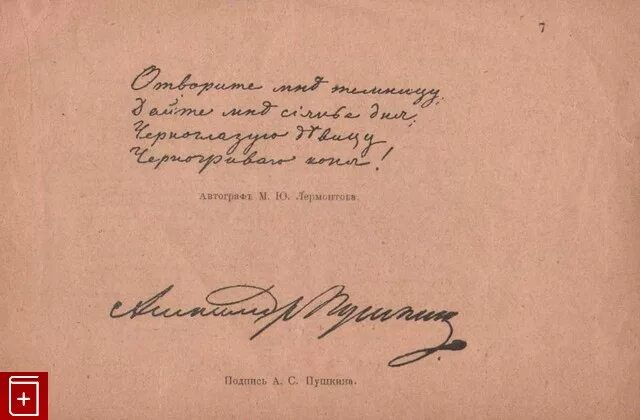 7
Отворите мнѣ темницу,
Дайте мнѣ сіянье дня,
Черноглазую дѣвицу
Черногриваго коня!
Автографъ М. Ю. Лермонтова.
Александр Пушкинъ
Подпись А. С. Пушкина.